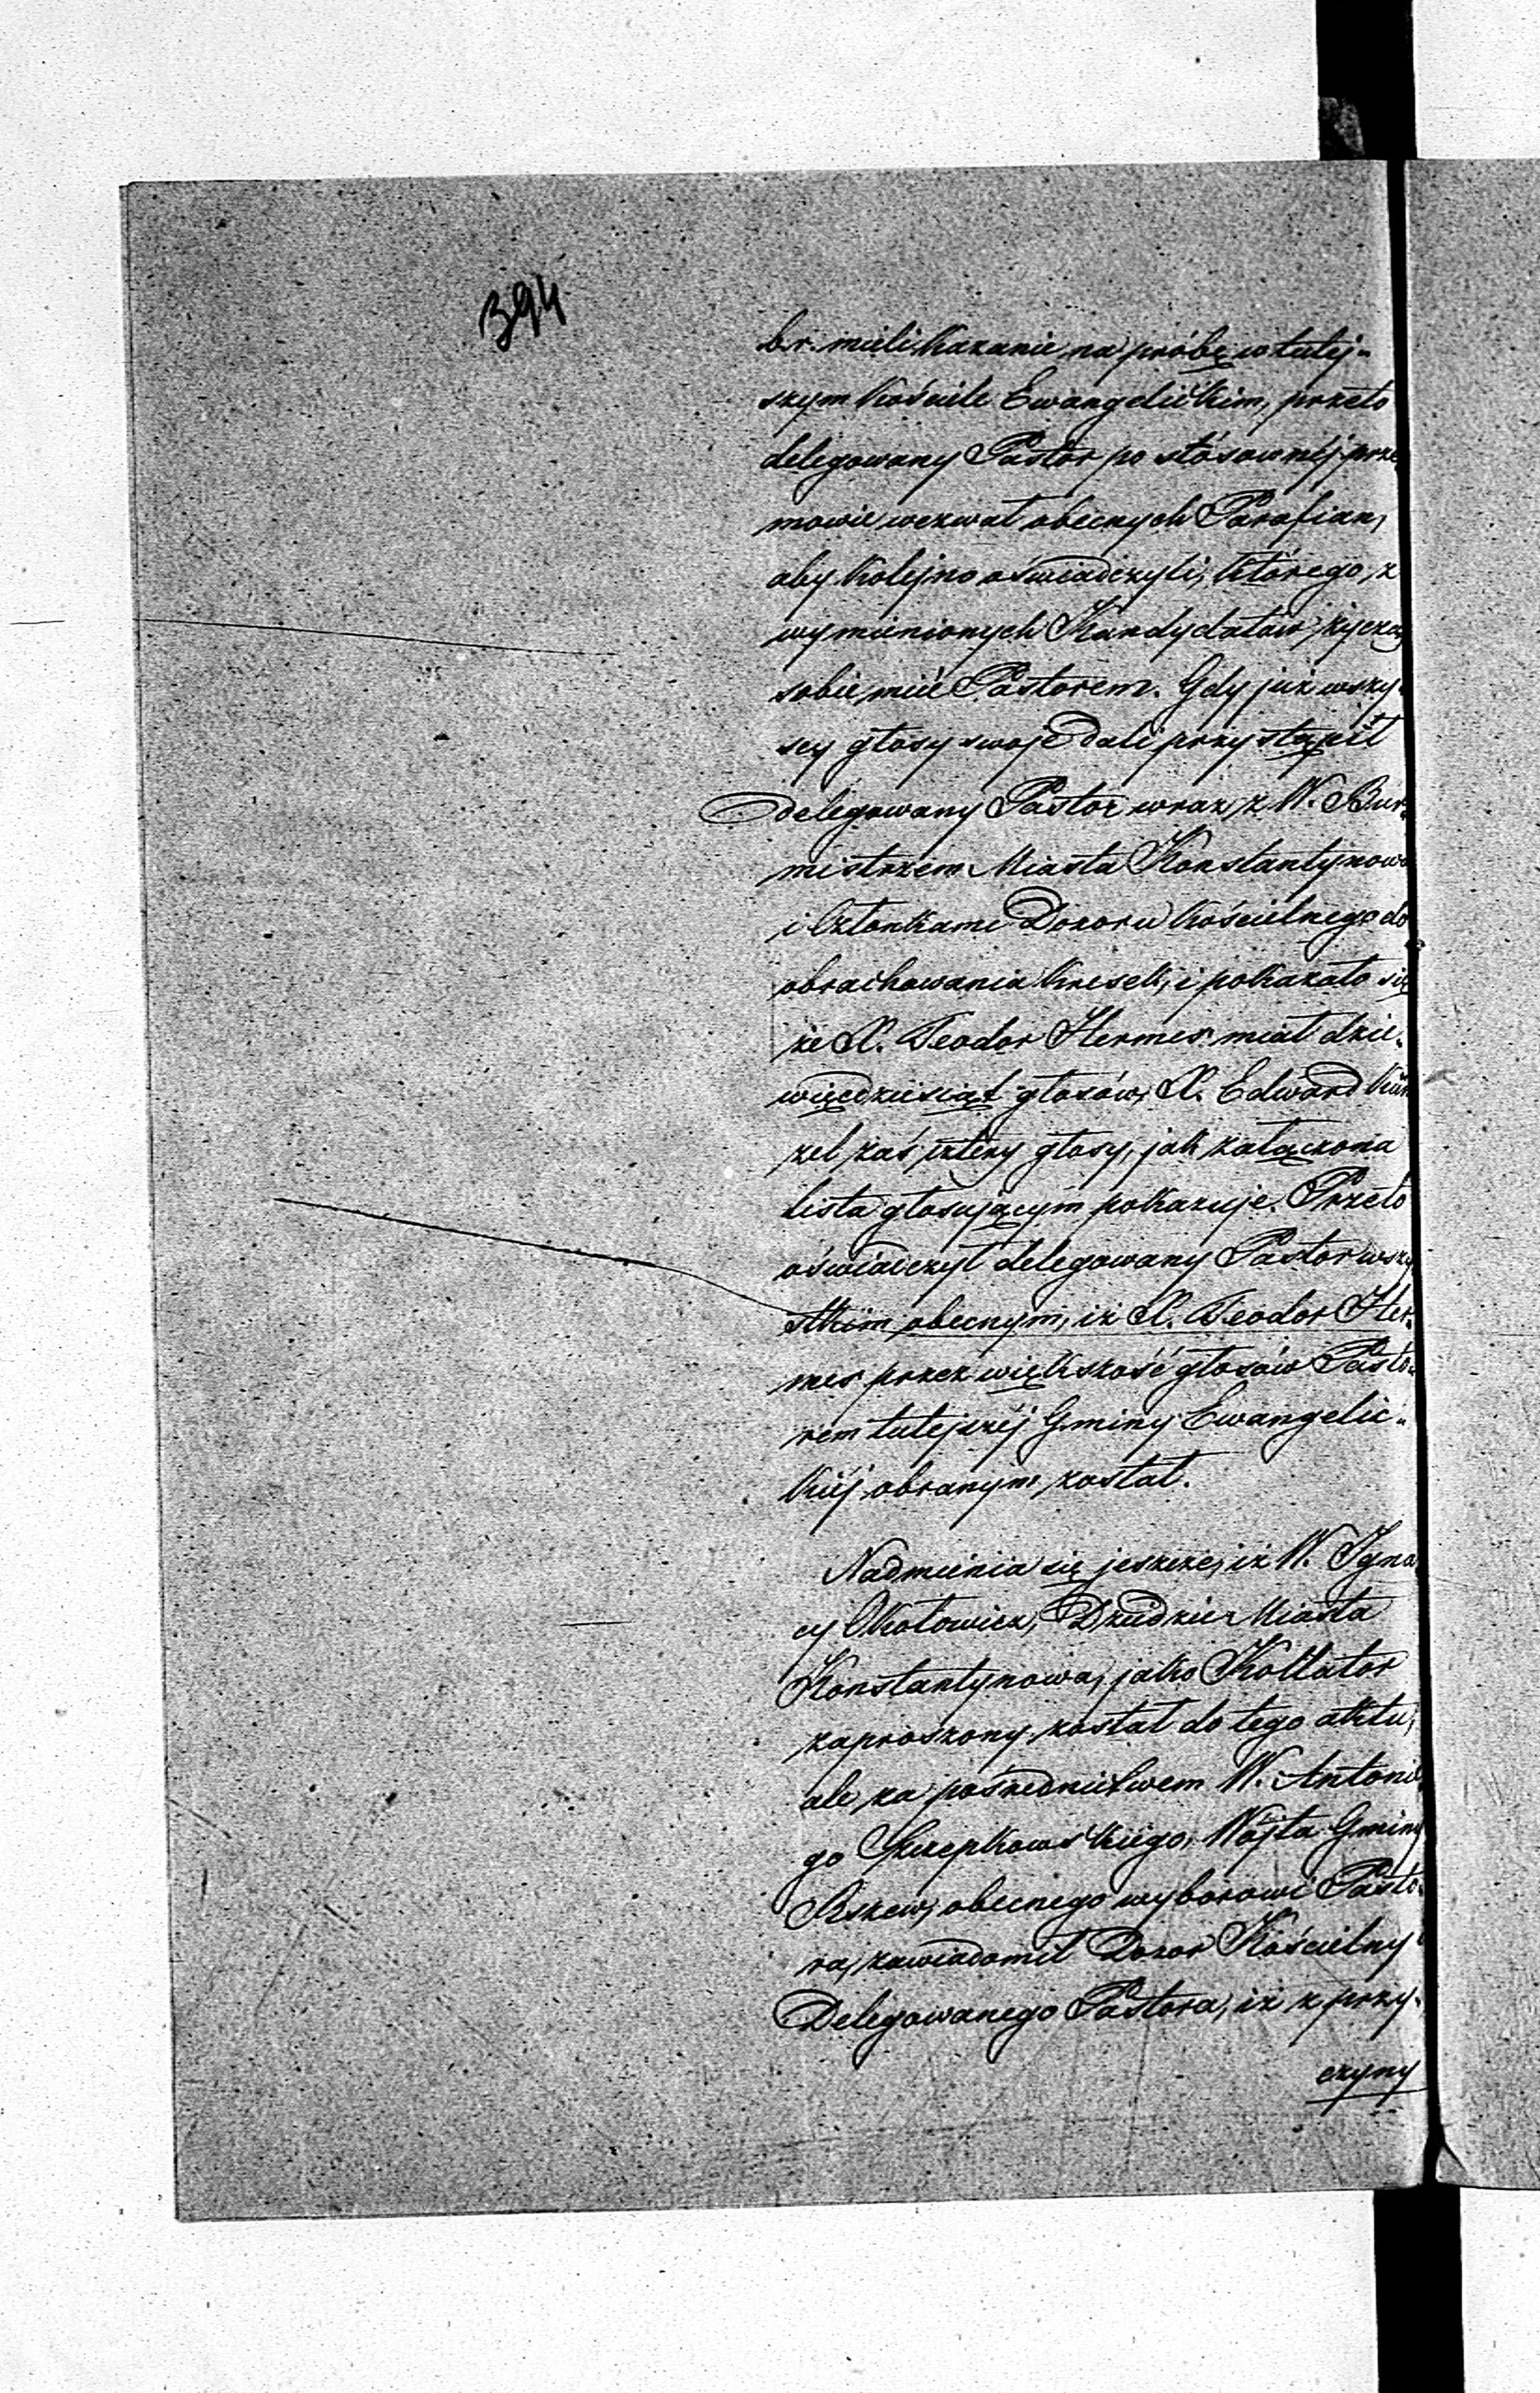 394
b.r. mieli Kazanie na próbę w tutej-
szym Kościele Ewangelićkim, przeto
delegowany Pastor po stósownéj prze
mowie wezwał obecnych Parafian,
aby kolejno oświadczyli, którego z
wymienionych Kandydatów życzą
sobie mieć Pastorem. Gdy już wszy-
scy głosy swoje dali przystąpił
delegowany Pastor wraz z W. Bur-
mistrzem Miasta Konstantynowa
i Członkami Dozoru Kościelnego do
obrachowania kresek, i pokazało się
że X. Teodor Hermes miał dzie-
więćdziesiąt głosów, X. Edward Kün
zel zaś cztery głosy, jak załączona
lista głosującym pokazuje. Przeto
oświadczył delegowany Pastor wszy
stkim obecnym, iż X. Teodor Her-
mes przez większość głosów Pasto-
rem tutejszéj Gminy Ewangelic-
kiéj obranym został.
Nadmienia się jeszcze, iż W. Igna
cy Okołowicz, Dziedzic Miasta
Konstantynowa, jako Kollator
zaproszony został do tego aktu,
ale za pośrednictwem W. Antonie
go Szczepkowskiego, Wójta Gminy
Rszew, obecnego wyborowi Pasto-
ra, zawiadomił Dozor Kościelny
Delegowanego Pastora, iż z przy-
czyny